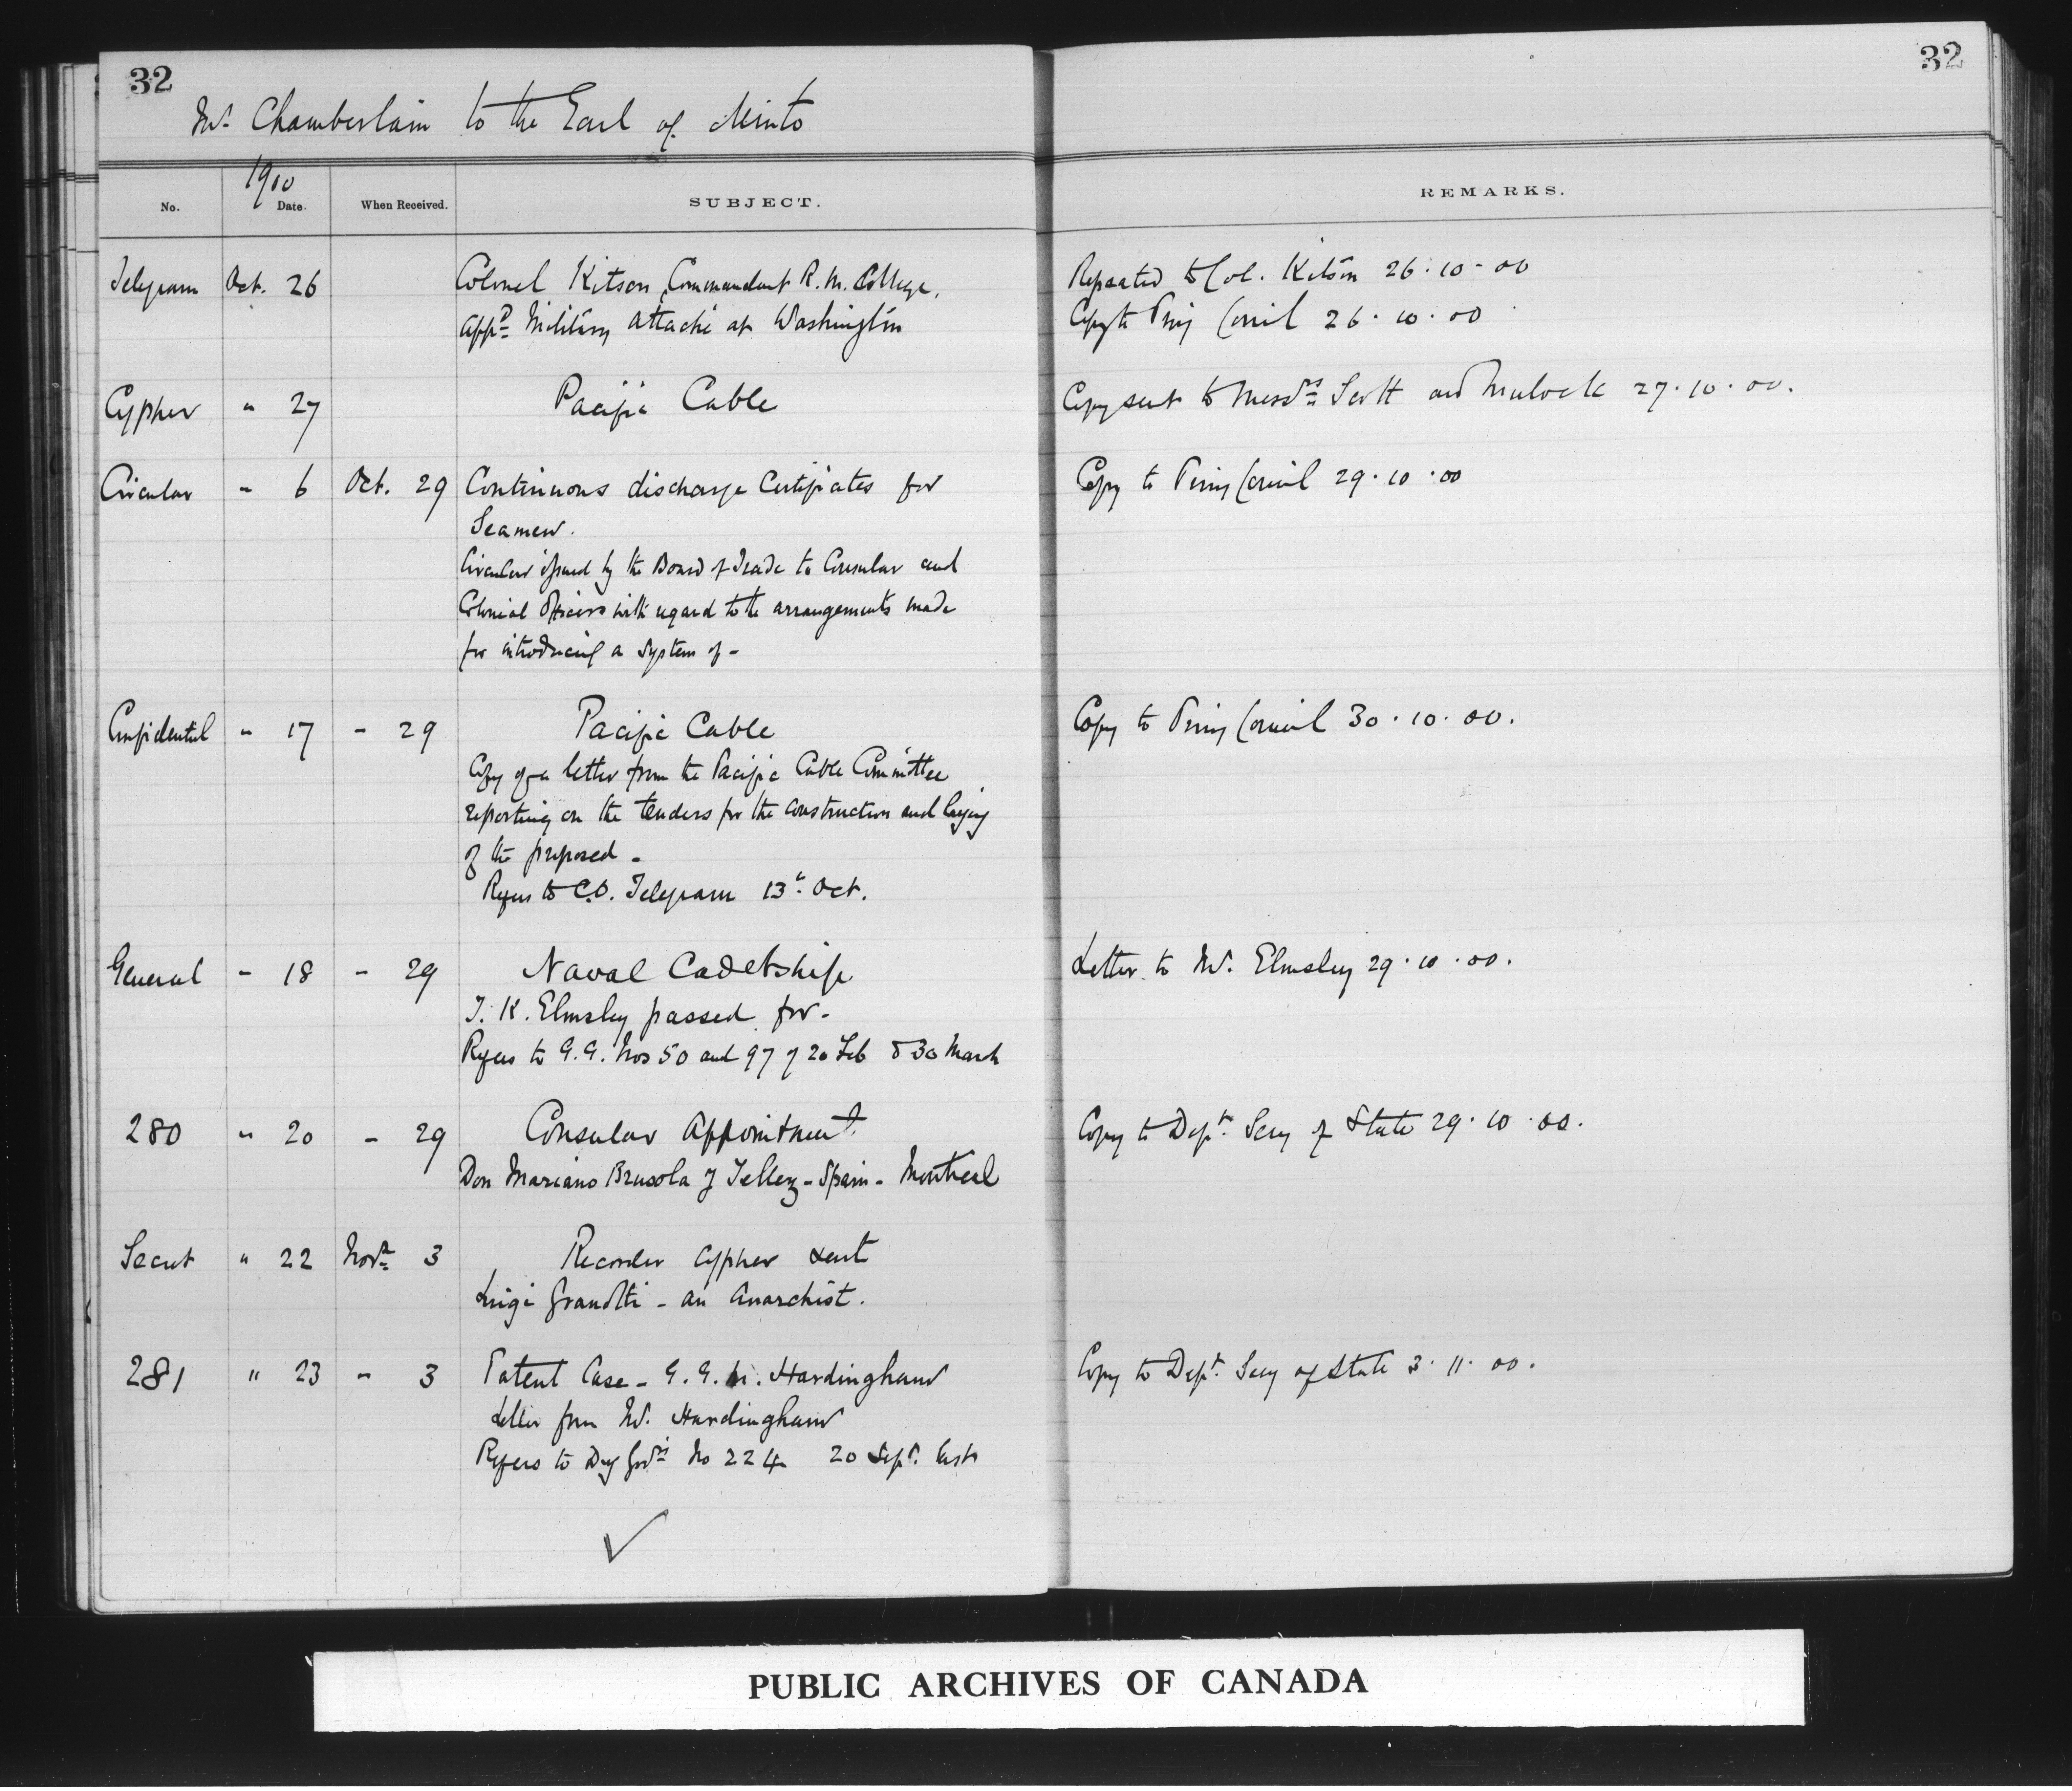 32
32
Mr. Chamberlain to the Earl of Minto
1900
No. Date. When Received. SUBJECT. REMARKS.
Telegram Oct. 26 Colonel Kitson, Commandant R. M. College, Repeated to Col. Kitson 26.10-00
appd Military Attaché at Washington Copy to Privy Council 26.10.00
Cypher " 27 Pacific Cable Copy sent to Messrs Scott and Mulock 27.10.00.
Circular - 6 Oct. 29 Continuous discharge Certificates for Copy to Privy Council 29.10.00
Seamen.
Circular issued by the Board of Trade to Consular and
Colonial Officers with regard to the arrangements made
for introducing a system of -
Confidential " 17 - 29 Pacific Cable Copy to Privy Council 30.10.00.
Copy of a letter from the Pacific Cable Committee
reporting on the tenders for the construction and laying
of the proposed -
Refers to C.O. Telegram 13th Oct.
General - 18 - 29 Naval Cadetship Letter to Mr. Elmsley 29.10.00.
T. K. Elmsley passed for -
Refers to G.G. Nos 50 and 97 of 20 Feb & 30 March
280 " 20 - 29 Consular Appointment Copy to Dept. Secy of State 29.10.00.
Don Mariano Brusola y Tellez - Spain - Montreal
Secret " 22 Novr 3 Recorder Cypher sent
Luigi Granotti - an Anarchist.
281 " 23 - 3 Patent Case - G. G. M. Hardingham Copy to Dept. Secy of State 3.11.00.
Letter from Mr. Hardingham
Refers to No 224 20 Sept. last
PUBLIC ARCHIVES OF CANADA